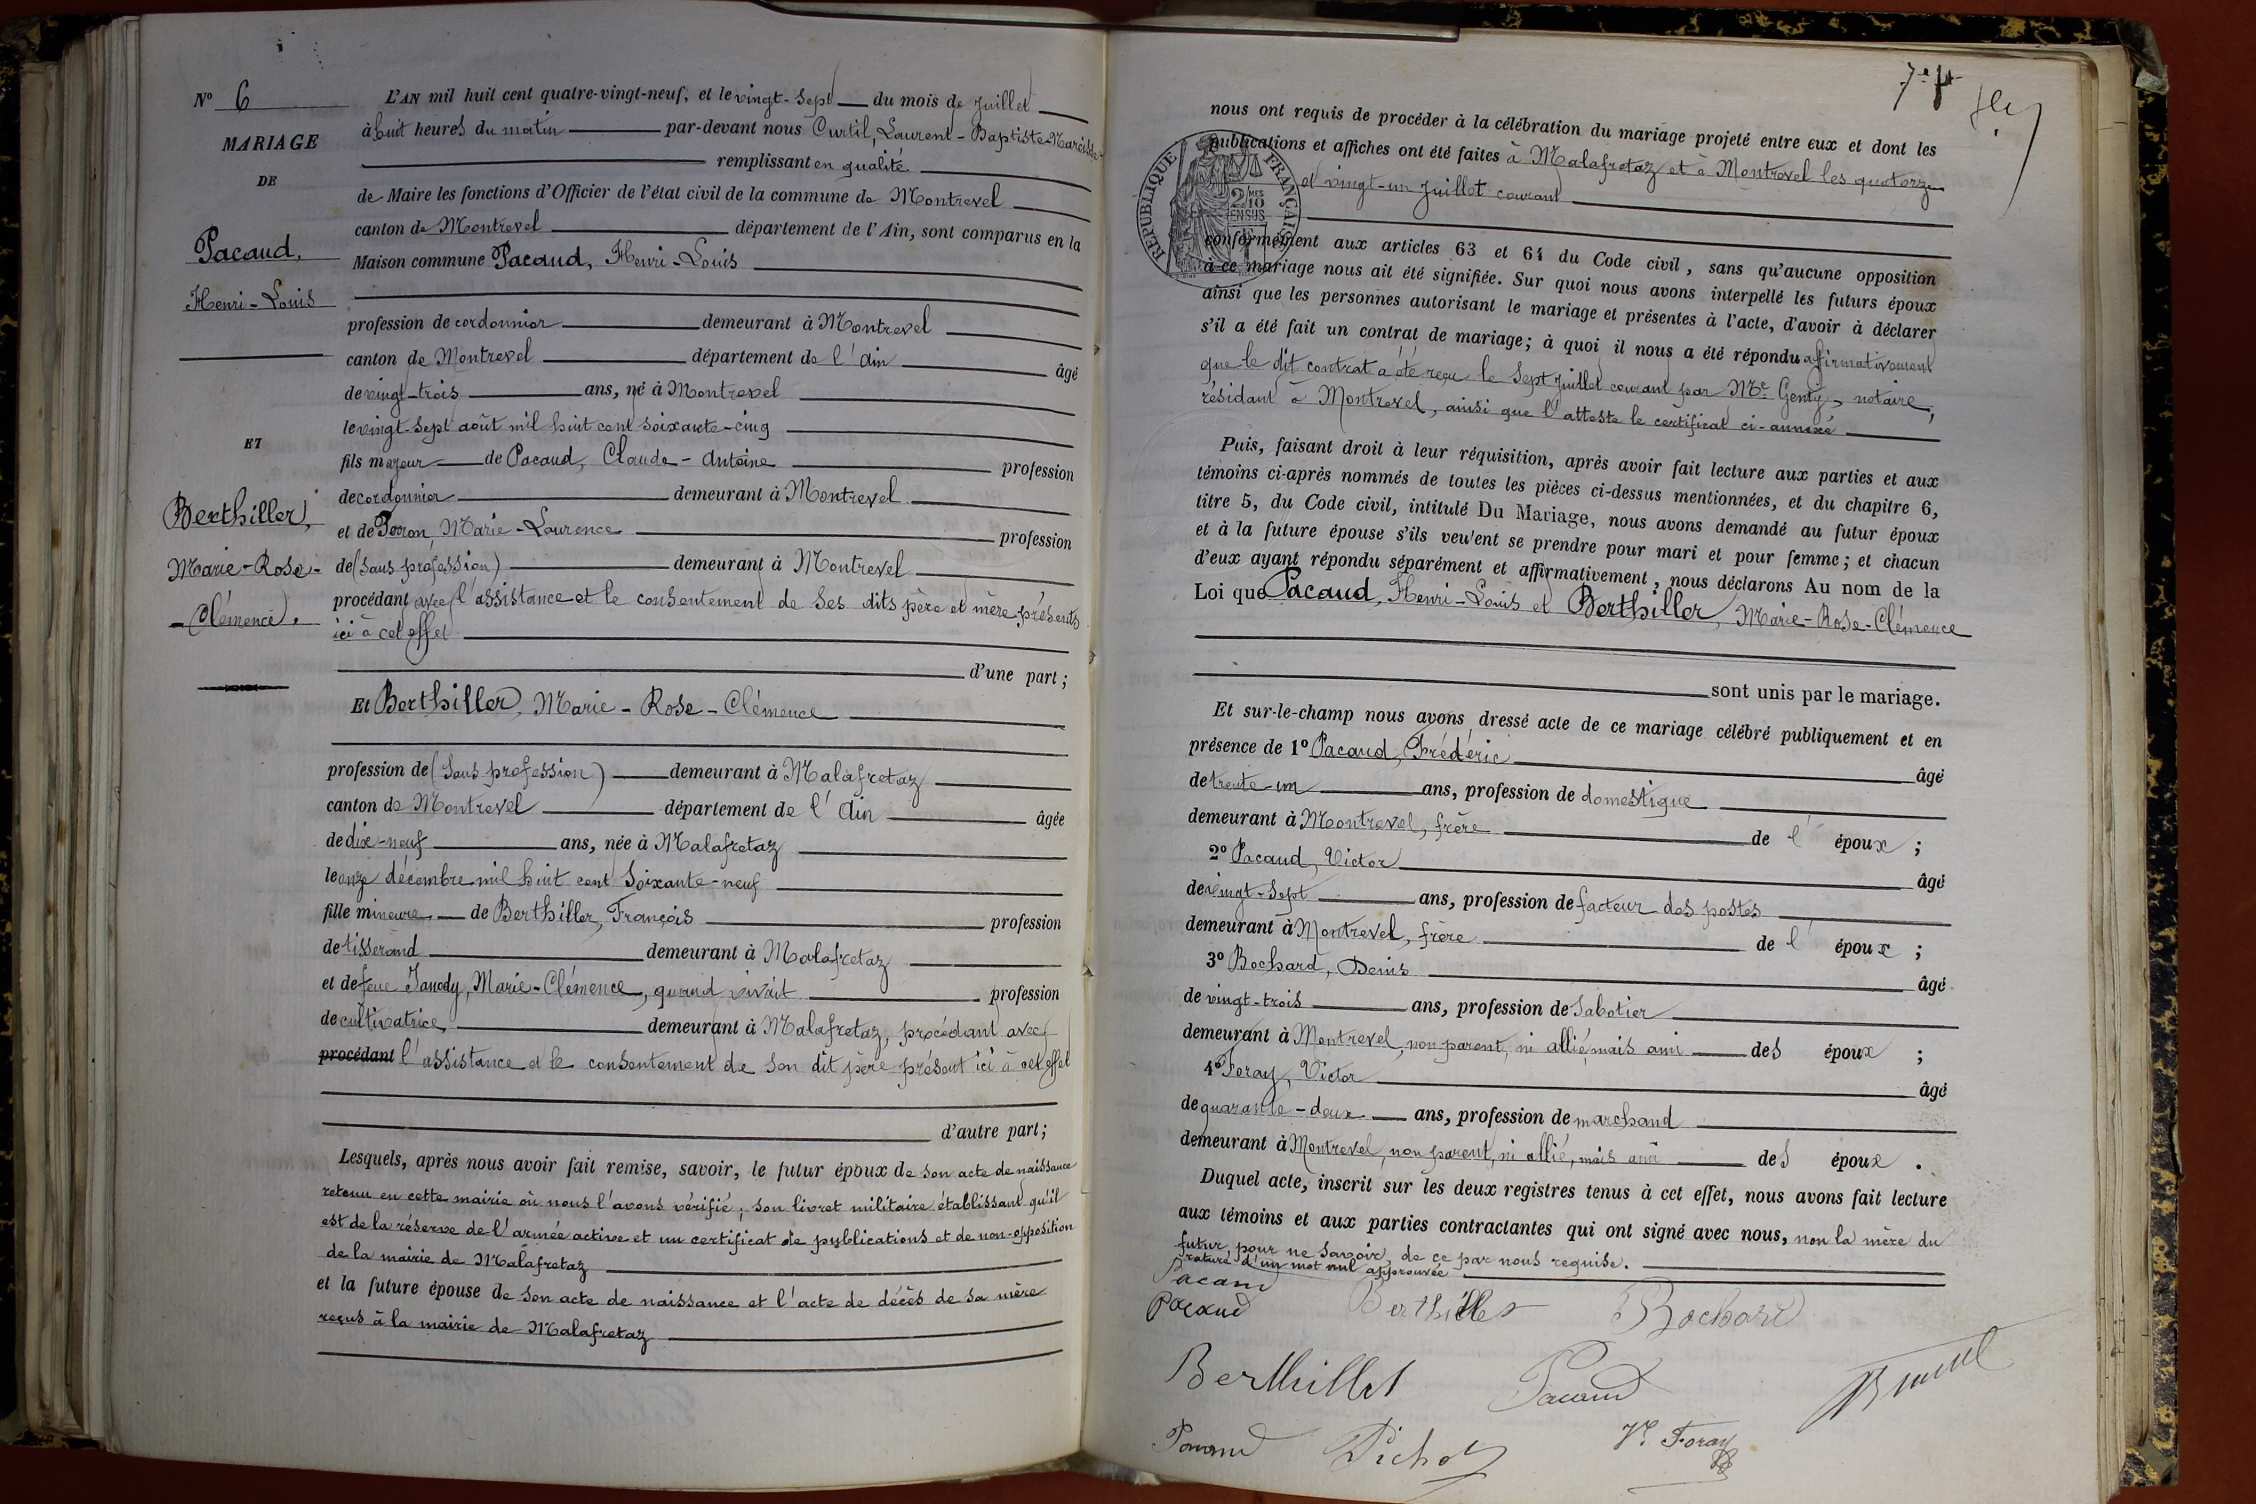 Nº 6
MARIAGE
DE
Pacaud,
Henri-Louis
ET
Berthiller,
Marie-Rose-
Clémence.
L'AN mil huit cent quatre-vingt-neuf, et le vingt-sept du mois de Juillet
à huit heures du matin par-devant nous Curtil, Laurent-Baptiste-Narcisse
remplissant en qualité
de Maire les fonctions d'Officier de l'état civil de la commune de Montrevel
canton de Montrevel département de l'Ain, sont comparus en la
Maison commune Pacaud, Henri-Louis
profession de cordonnier demeurant à Montrevel
canton de Montrevel département de l'Ain âgé
de vingt-trois ans, né à Montrevel
le vingt-sept août mil huit cent soixante-cinq
fils majeur de Pacaud, Claude-Antoine profession
de cordonnier demeurant à Montrevel
et de Perron, Marie-Laurence profession
de (sans profession) demeurant à Montrevel
procédant avec l'assistance et le consentement de ses dits père et mère présents
ici à cet effet
d'une part;
Et Berthiller, Marie-Rose-Clémence
profession de (sans profession) demeurant à Malafretaz
canton de Montrevel département de l'Ain âgée
de dix-neuf ans, née à Malafretaz
le onze décembre mil huit cent soixante-neuf
fille mineure de Berthiller, François profession
de tisserand demeurant à Malafretaz
et de feue Janody, Marie-Clémence, quand vivait profession
de cultivatrice, demeurant à Malafretaz, procédant avec
procédant l'assistance et le consentement de son dit père présent ici à cet effet
d'autre part;
Lesquels, après nous avoir fait remise, savoir, le futur époux de son acte de naissance
retenu en cette mairie où nous l'avons vérifié, son livret militaire établissant qu'il
est de la réserve de l'armée active et un certificat de publications et de non-opposition
de la mairie de Malafretaz
et la future épouse de son acte de naissance et l'acte de décès de sa mère
reçus à la mairie de Malafretaz
nous ont requis de procéder à la célébration du mariage projeté entre eux et dont les
publications et affiches ont été faites à Malafretaz et à Montrevel les quatorze
et vingt-un Juillet courant
RÉPUBLIQUE FRANÇAISE
conformément aux articles 63 et 64 du Code civil, sans qu'aucune opposition
à ce mariage nous ait été signifiée. Sur quoi nous avons interpellé les futurs époux
ainsi que les personnes autorisant le mariage et présentes à l'acte, d'avoir à déclarer
s'il a été fait un contrat de mariage; à quoi il nous a été répondu affirmativement
que le dit contrat a été reçu le sept Juillet courant par Me Genty, notaire,
résidant à Montrevel, ainsi que l'atteste le certificat ci-annexé
Puis, faisant droit à leur réquisition, après avoir fait lecture aux parties et aux
témoins ci-après nommés de toutes les pièces ci-dessus mentionnées, et du chapitre 6,
titre 5, du Code civil, intitulé Du Mariage, nous avons demandé au futur époux
et à la future épouse s'ils veulent se prendre pour mari et pour femme; et chacun
d'eux ayant répondu séparément et affirmativement, nous déclarons Au nom de la
Loi que Pacaud, Henri-Louis et Berthiller, Marie-Rose-Clémence
sont unis par le mariage.
Et sur-le-champ nous avons dressé acte de ce mariage célébré publiquement et en
présence de 1º Pacaud, Frédéric âgé
de trente-un ans, profession de domestique
demeurant à Montrevel, frère de l'époux;
2º Pacaud, Victor âgé
de vingt-sept ans, profession de facteur des postes
demeurant à Montrevel, frère de l'époux;
3º Bochard, Denis âgé
de vingt-trois ans, profession de sabotier
demeurant à Montrevel, non parent, ni allié, mais ami des époux;
4º Foray, Victor âgé
de quarante-deux ans, profession de marchand
demeurant à Montrevel, non parent, ni allié, mais ami des époux.
Duquel acte, inscrit sur les deux registres tenus à cet effet, nous avons fait lecture
aux témoins et aux parties contractantes qui ont signé avec nous, non la mère du
futur pour ne savoir, de ce par nous requise.
rature d'un mot nul approuvée
Pacaud
Pacaud Berthiller Bochard
Berthillet Pacaud
Pacaud Pichoz Vr. Foray